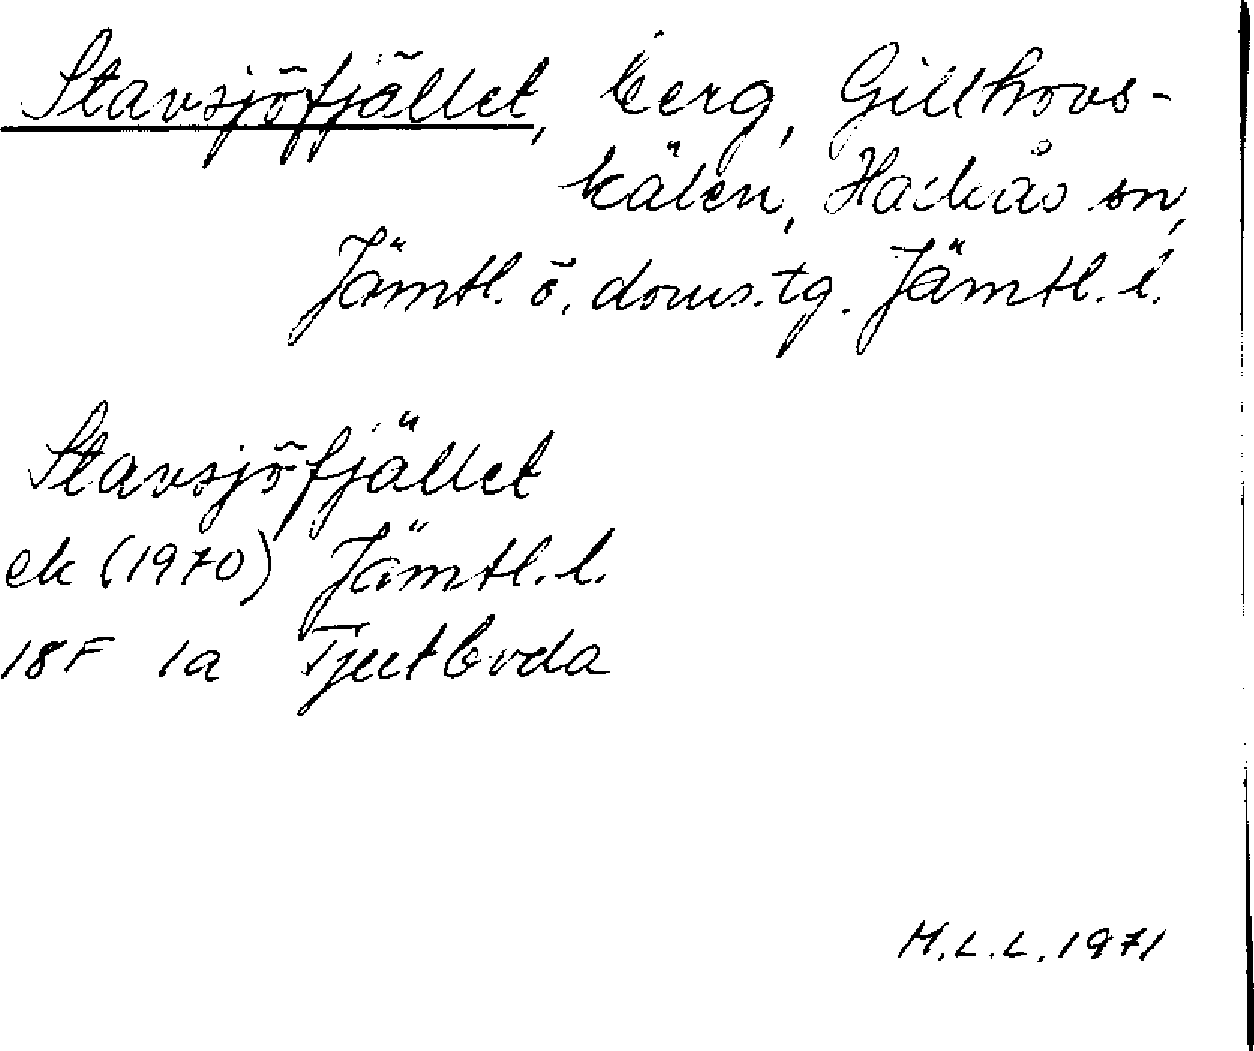 Stavsjöfjället, berg, Gillhovs-
kälen, Hackås sn,
Jämtl. ö. doms. tg. Jämtl. l.
Stavsjöfjället
ek (1970) Jämtl. l.
18F 1a Tjuetboda
M.L.L. 1971